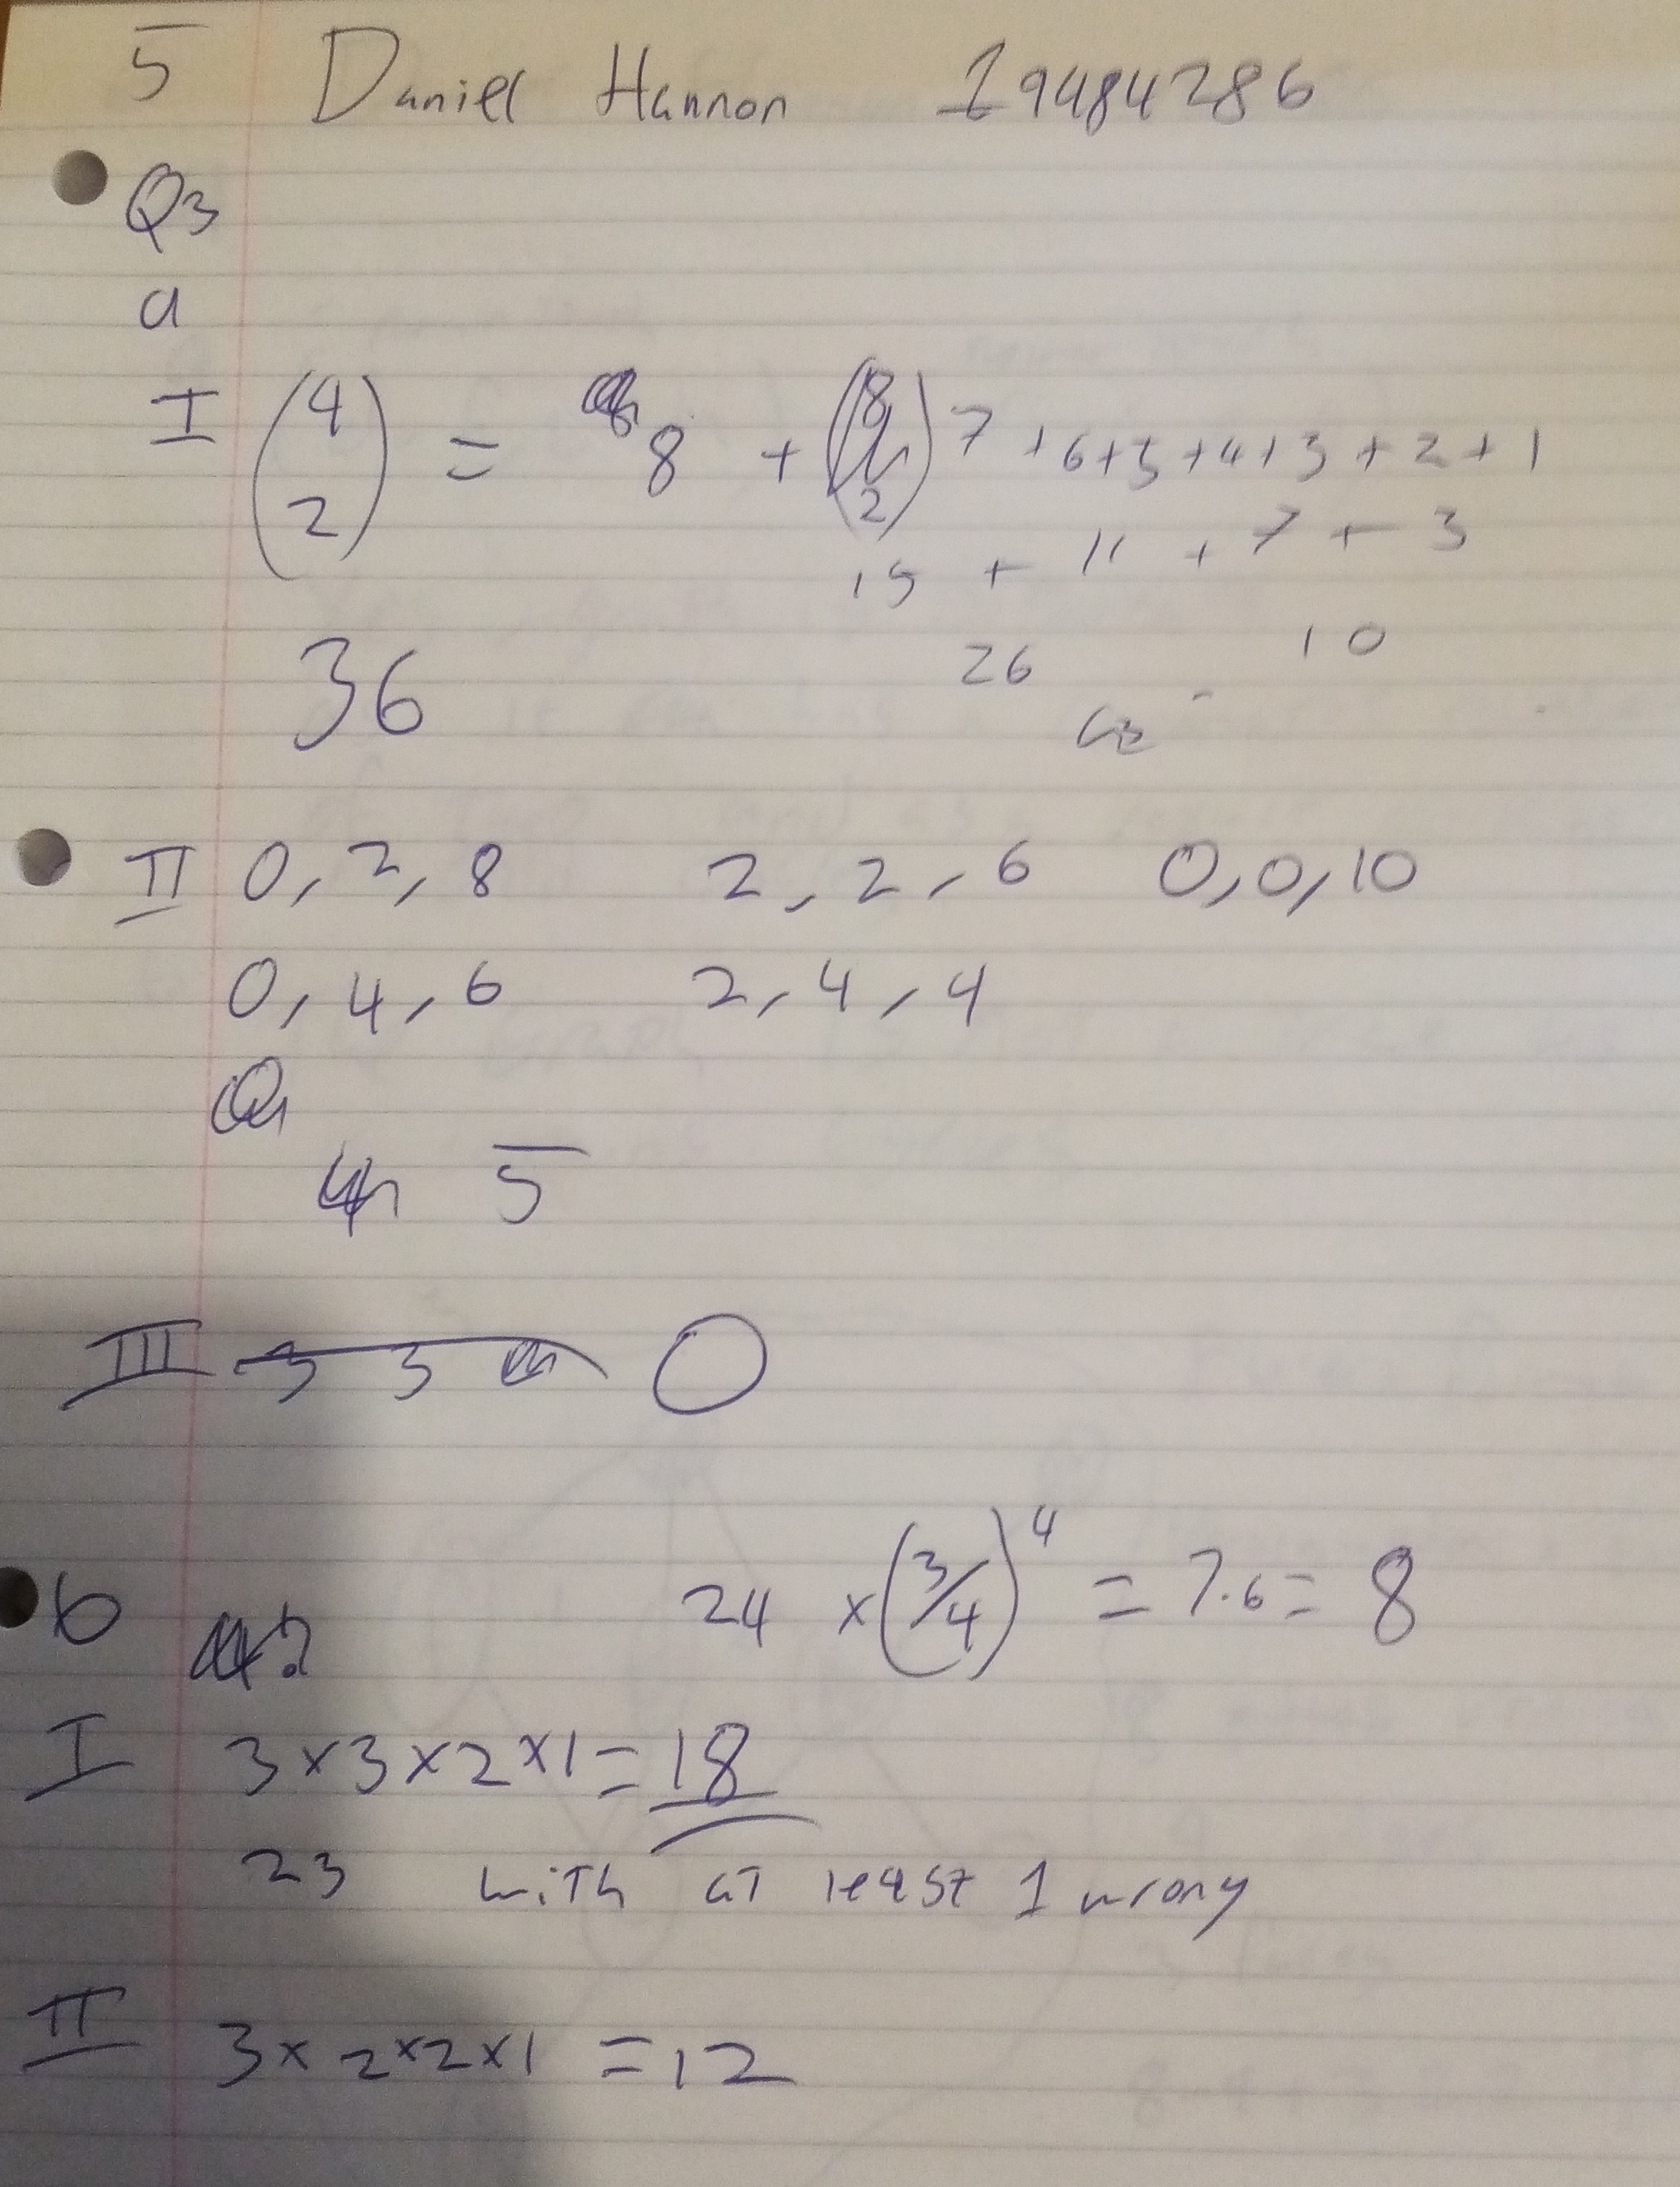 5 Daniel Hannon 19484286
Q3
a
I (9 2) = 8 + (8 2) 7 + 6 + 5 + 4 + 3 + 2 + 1
15 + 11 + 7 + 3
36 26 10
II 0, 2, 8 2, 2, 6 0, 0, 10
0, 4, 6 2, 4, 4
5
III 3 3 0
b 24 × (3/4)^4 = 7.6 = 8
I 3 × 3 × 2 × 1 = 18
23 with at least 1 wrong
II 3 × 2 × 2 × 1 = 12